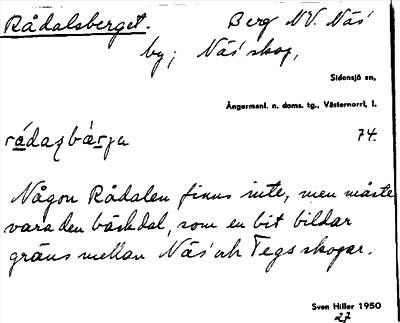 Rådalsberget. Berg NV. Näs
by; Näs skog,
Sidensjö sn,
Ångermanl. n. doms. tg., Västernorrl. l.
rådaɀbárja 74.
Någon Rådalen finns inte, men måste
vara den bäckdal, som en bit bildar
gräns mellan Näs' och Tegs skogar.
Sven Hiller 1950
27